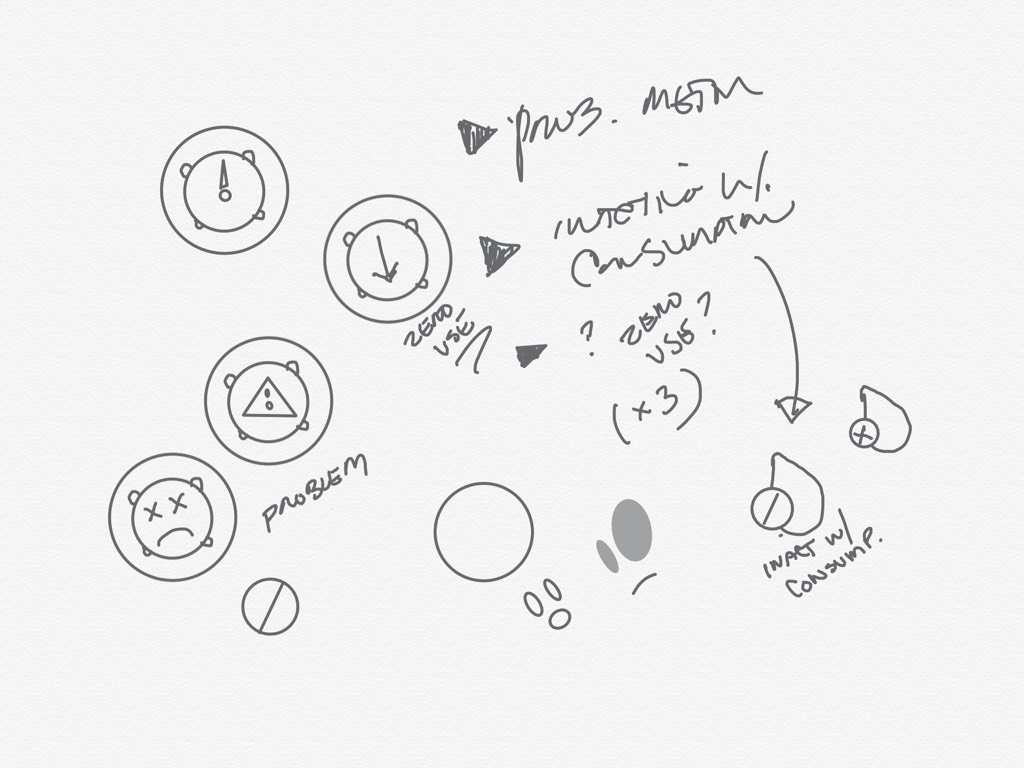 PROB. METER
INACTIVE W/.
CONSUMPTION
ZERO
USE!
? ZERO
USE?
(x3)
PROBLEM
INACT W/
CONSUMP.